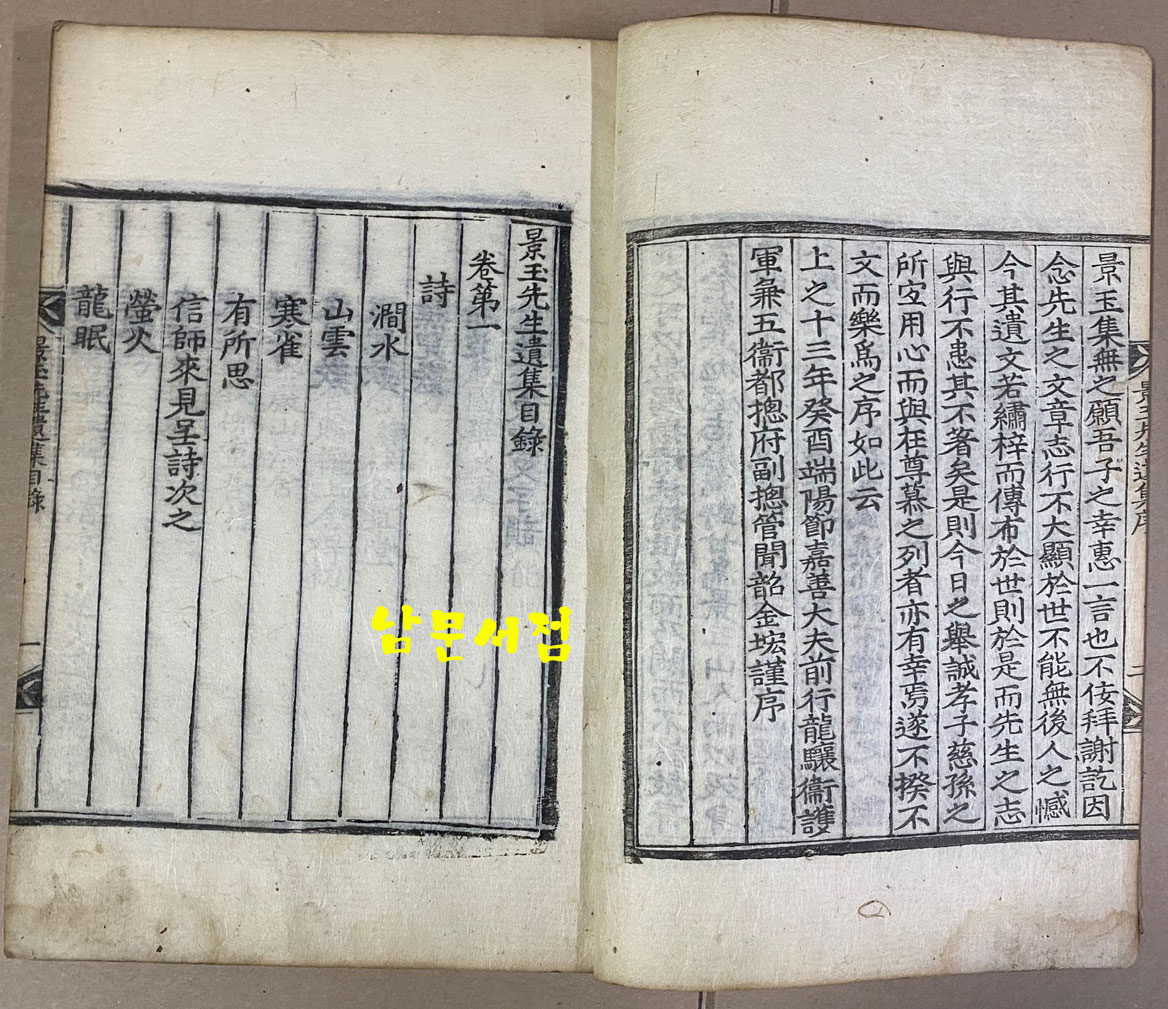 景玉集無之願吾子之幸惠一言也不佞拜謝訖因
念先生之文章志行不大顯於世不能無後人之憾
今其遺文若繡梓而傳布於世則於是而先生之志
與行不患其不著矣是則今日之擧誠孝子慈孫之
所宜用心而與在尊慕之列者亦有幸焉遂不揆不
文而樂爲之序如此云
上之十三年癸酉端陽節嘉善大夫前行龍驤衞護
軍兼五衞都摠府副摠管聞韶金㙆謹序
景玉先生遺集目錄
卷第一
詩
澗水
山雲
寒雀
有所思
信師來見呈詩次之
螢火
龍眠
景玉先生遺集目錄
一
남문서점